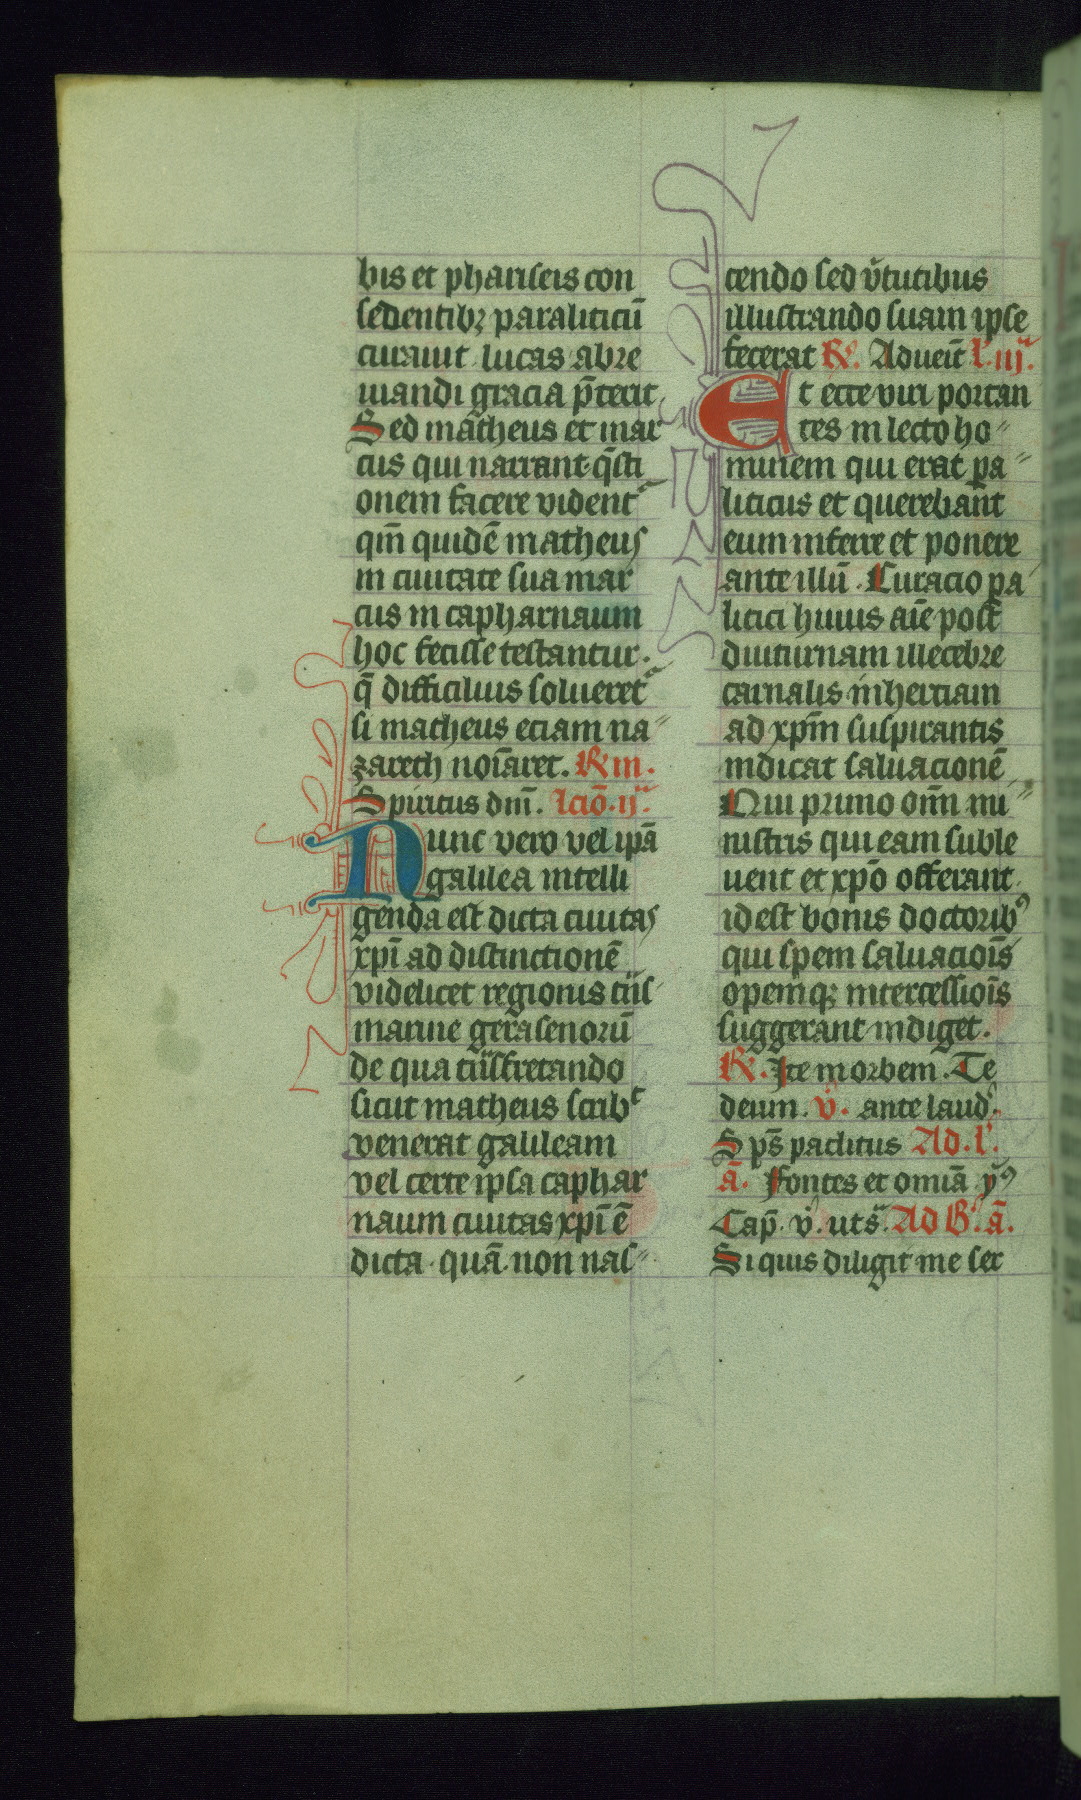 bis et phariseis con
sedentibꝫ paraliticū
curauit lucas abre
uiandi gracia p̄terit
Sed matheus et mar
cus qui narrant q̄sti
onem facere vident᷑
qm̄ quidē matheus
in ciuitate sua mar
cus in capharnaum
hoc fecisse testantur.
q̄ difficilius solueret᷑
si matheus eciam na〃
zareth noīaret. R̄ iii.
Spiritus dm̄. lctō. ij᷑.
Nunc vero vel ipā
galilea intelli
genda est dicta ciuitas
xpī ad distinctionē
videlicet regionis t͛ns
marine gerasenorū
de qua t͛nsfretando
sicut matheus scribᵗ
venerat galileam
vel certe ipsa caphar
naum ciuitas xpī ē
dicta. quā non nas〃
cendo sed v̓tutibus
illustrando suam ipse
fecerat R̄. Adueīt l'. iij᷑.
Et ecce viri portan
tes in lecto ho〃
minem qui erat pa〃
liticus et querebant
eum inferre et ponere
ante illū. Curacio pa
litici huius aīe post
diuturnam illecebre
carnalis inherciam
ad xp̄m suspirantis
indicat saluacionē
Qui primo om̄ mi〃
nistris qui eam suble
uent et xp̄o offerant
id est bonis doctoribꝰ
qui spem saluacioīs
opemqꝫ intercessioīs
suggerant indiget.
R̄. Ite in orbem. Te
deum. v̓. ante laud'.
S p̄s paclitus Ad. l'.
ā. Fontes et omīa yꝰ
Cap̄. v̓. ut s͛. Ad B'. ā.
Si quis diligit me ser